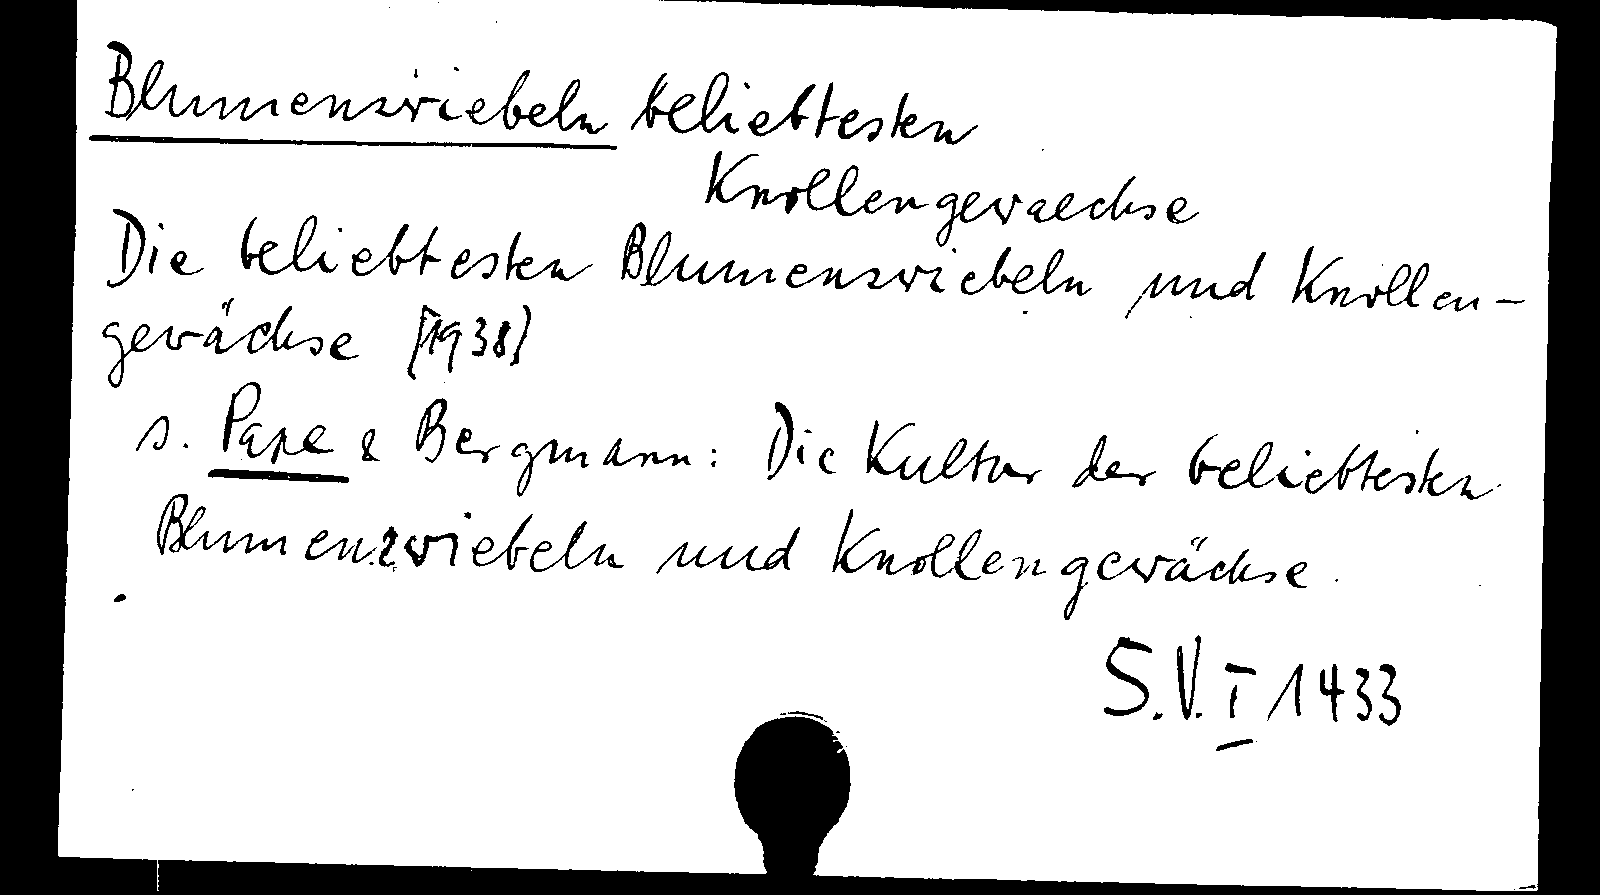 Blumenzwiebeln beliebtesten
Knollengewaechse
Die beliebtesten Blumenzwiebeln und Knollen-
gewächse [1938]
s. Pape & Bergmann: Die Kultur der beliebtesten
Blumenzwiebeln und Knollengewächse.
S.V. I 1433